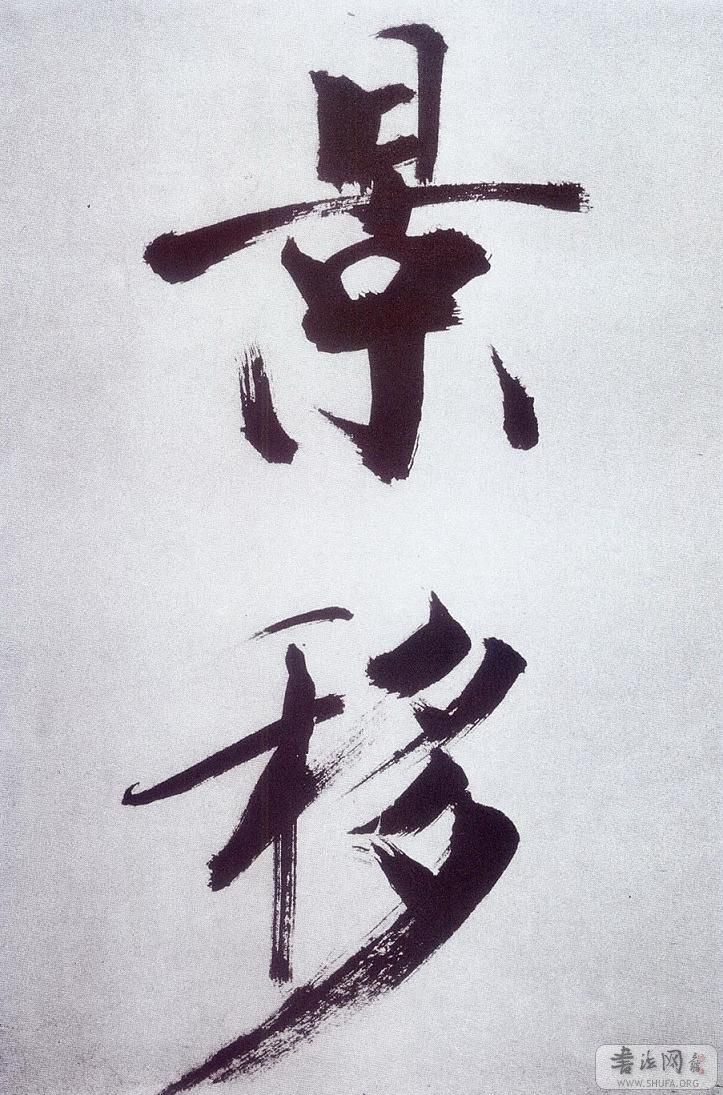 景
移
书法网
WWW.SHUFA.ORG